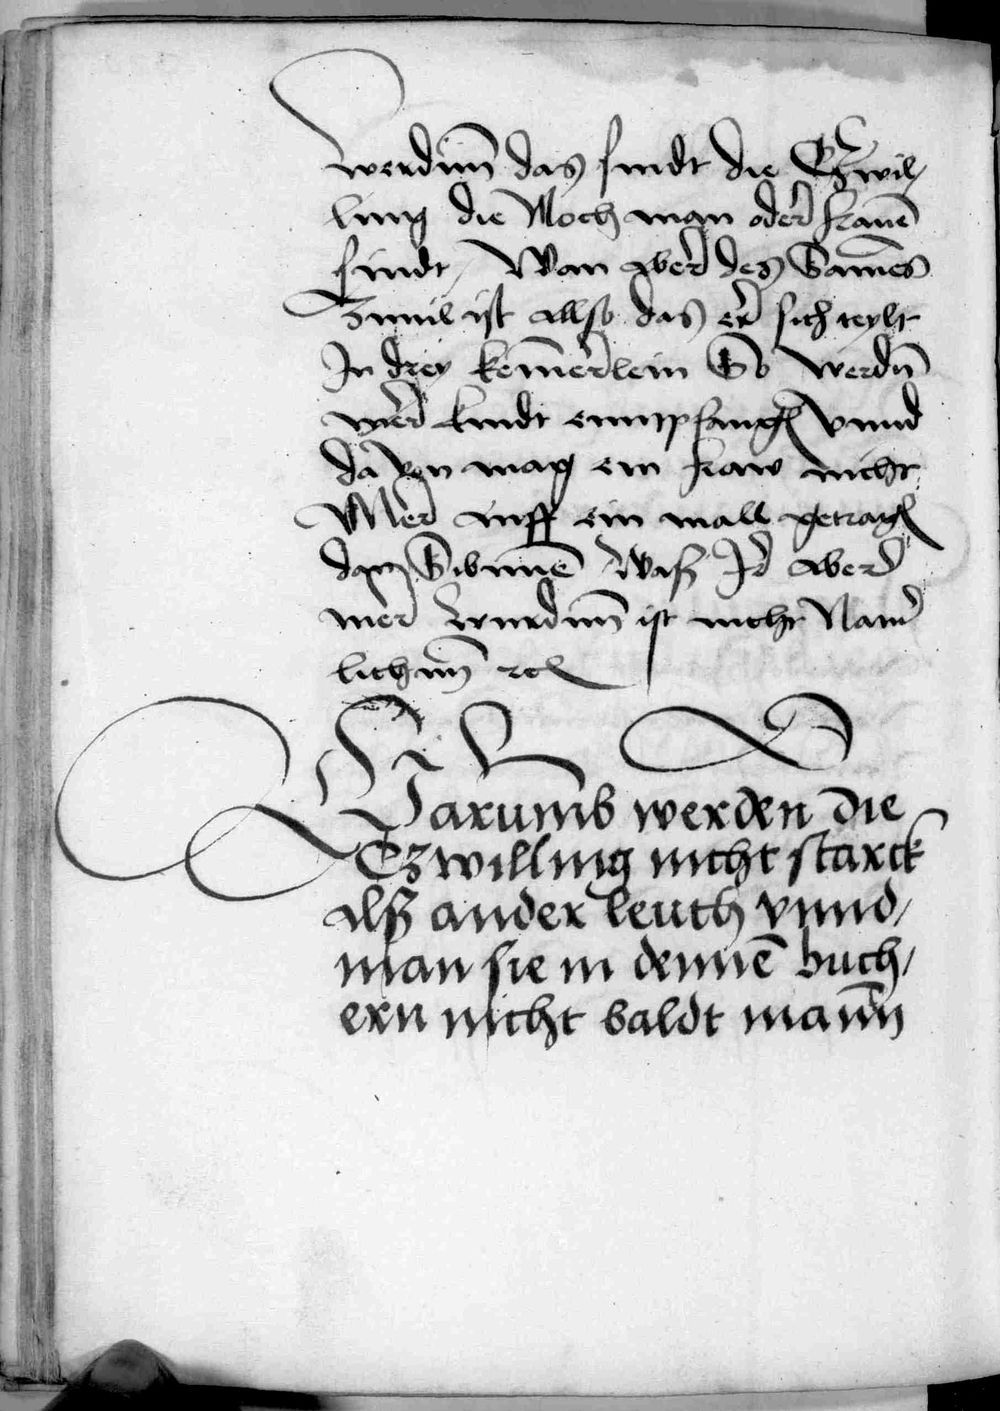 werdinn das sindt die Tzwil/
ling die Noch man oder frauē
sindt / Wan aber des Samēs
Zuuil ist allso das er sich teylt
In drey kem̄erlein So werdn̄
vier kindt enntpfangē vnnd
da von mag ein fraw nicht
Mer auff ein mall getragē
dan Sibnnē Waß Ir aber
mer wurdinn ist nicht Natur
lich nn̄ etc
Warumb werden die
Tzwilling nicht starck
alß ander leuth vnnd/
man sie in dennē buch/
ern nicht baldt mann̄